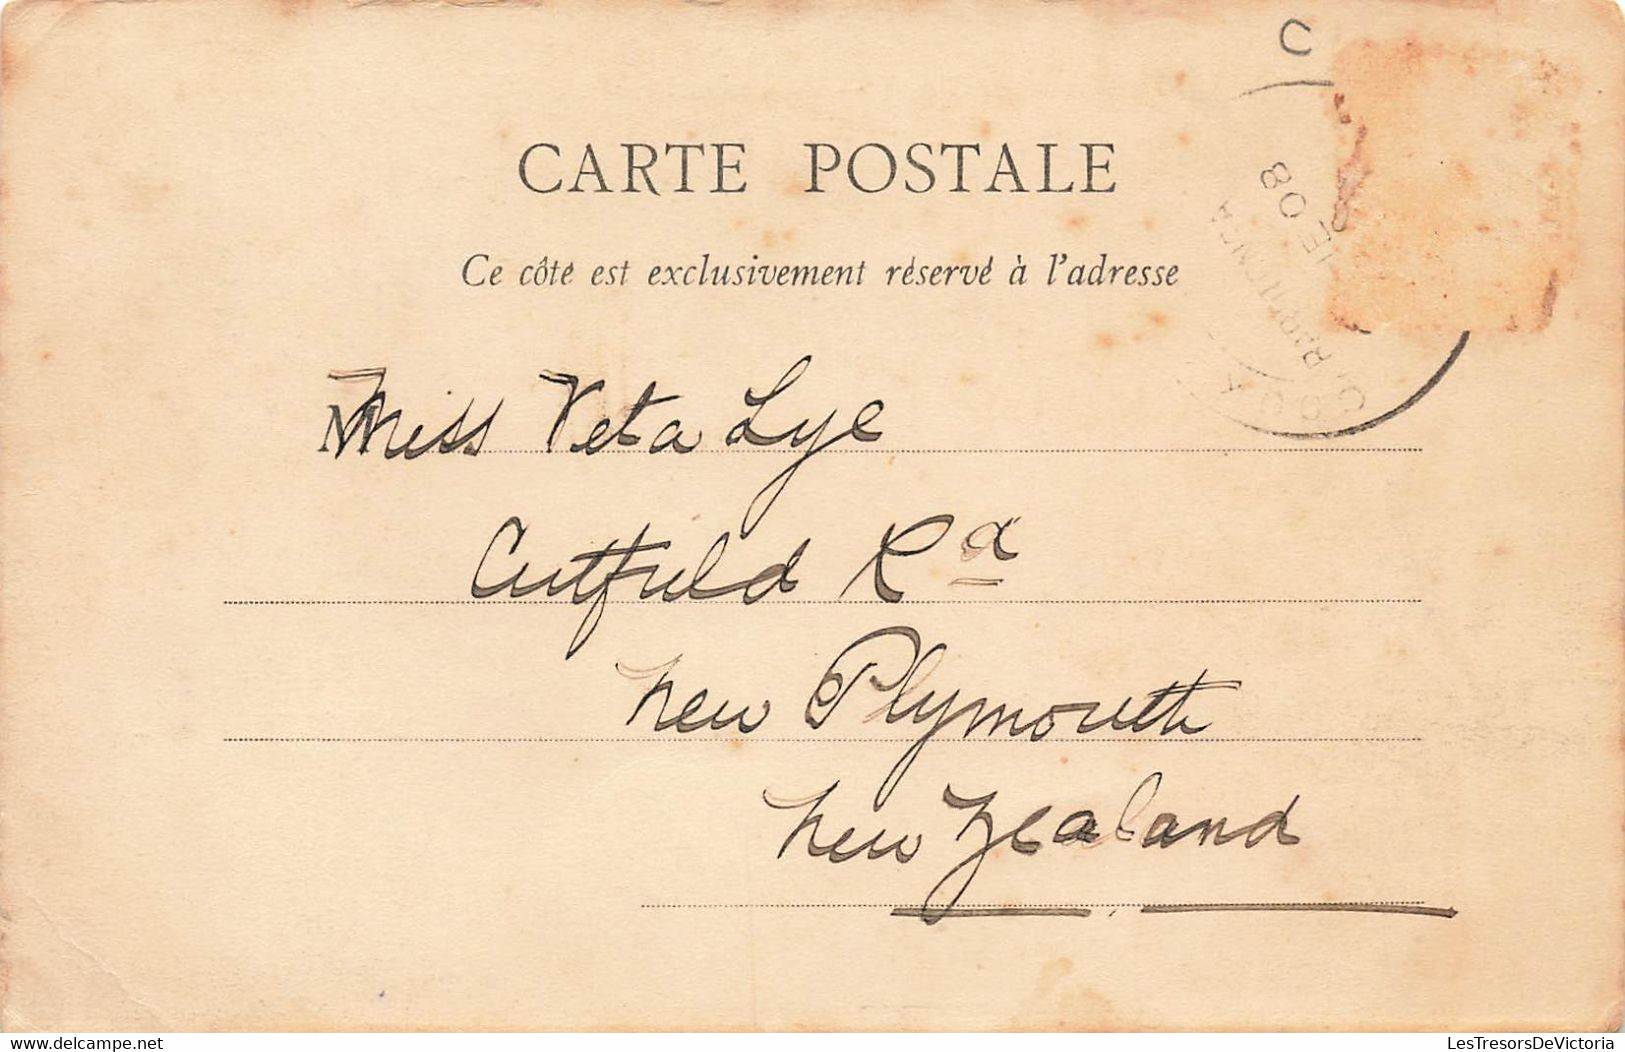 C
CARTE POSTALE
08
Ce côté est exclusivement réservé à l'adresse
Miss Veta Lye
Cutfield Rd
New Plymouth
New Zealand
LesTresorsDeVictoria
http://www.delcampe.net